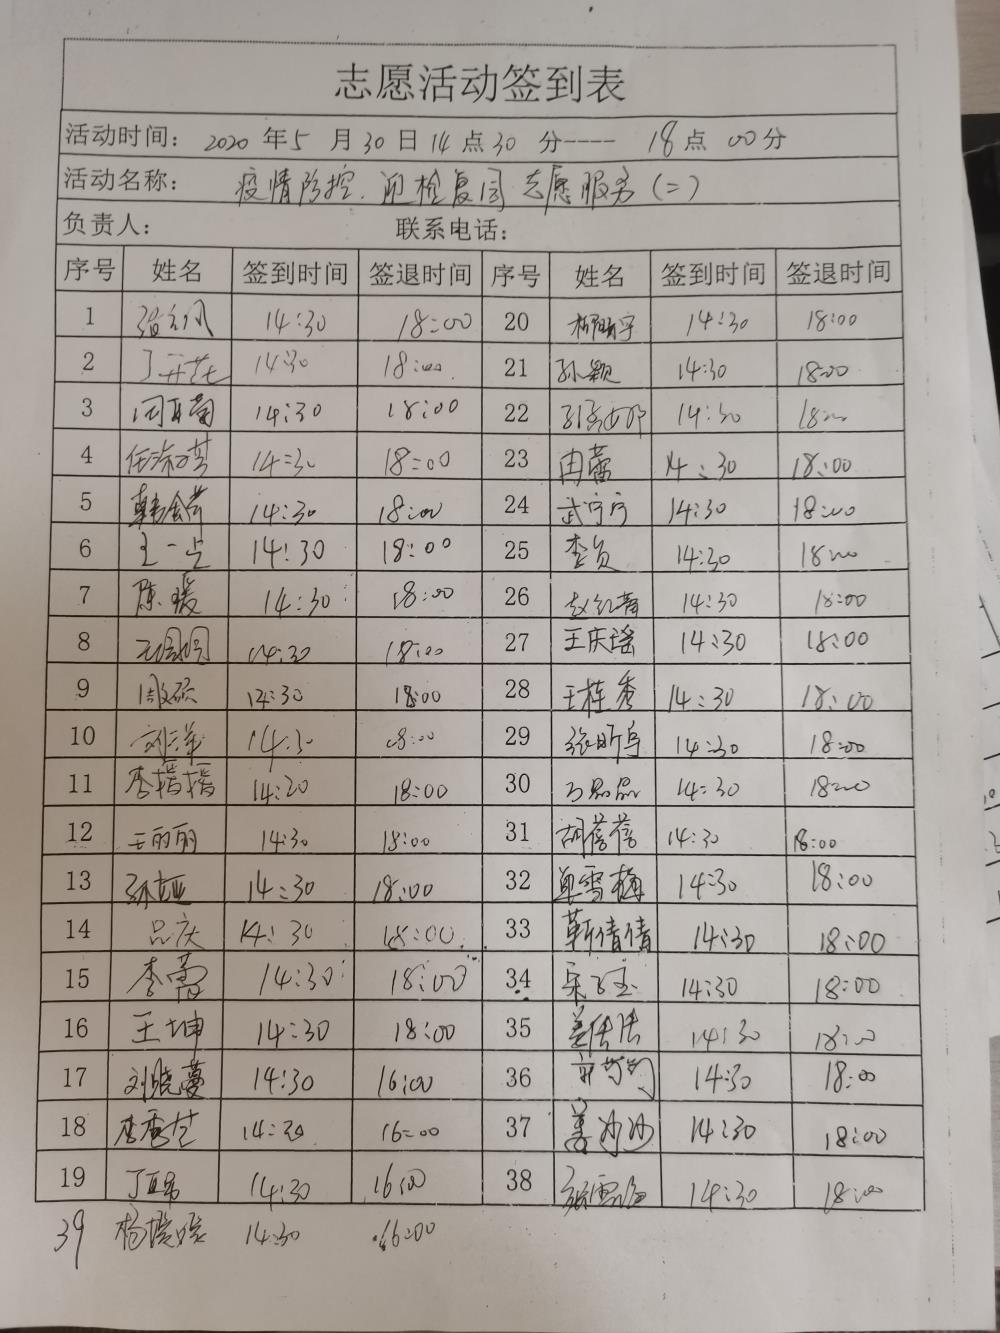 志愿活动签到表
活动时间: 2020 年 5 月 30 日 14 点 30 分---- 18 点 00 分
活动名称: 疫情防控.迎检复园 志愿服务(二)
负责人: 联系电话:
序号 姓名 签到时间 签退时间 序号 姓名 签到时间 签退时间
1 14:30 18:00 20 14:30 18:00
2 14:30 18:00 21 孙颖 14:30 18:00
3 14:30 18:00 22 14:30 18:00
4 14:30 18:00 23 冉蕾 14:30 18:00
5 14:30 18:00 24 武宁宁 14:30 18:00
6 王一点 14:30 18:00 25 李贞 14:30 18:00
7 陈瑗 14:30 18:00 26 14:30 18:00
8 14:30 18:00 27 王庆瑶 14:30 18:00
9 周硕 14:30 18:00 28 王桂香 14:30 18:00
10 刘洋 14:30 18:00 29 14:30 18:00
11 李搢搢 14:20 18:00 30 14:30 18:00
12 王丽丽 14:30 18:00 31 胡蓓蓓 14:30 18:00
13 14:30 18:00 32 单雪梅 14:30 18:00
14 吕庆 14:30 18:00 33 靳倩倩 14:30 18:00
15 14:30 18:00 34 14:30 18:00
16 王坤 14:30 18:00 35 14:30 18:00
17 刘晓蔓 14:30 16:00 36 14:30 18:00
18 14:30 16:00 37 姜沙沙 14:30 18:00
19 14:30 16:00 38 14:30 18:00
39 14:30 16:00